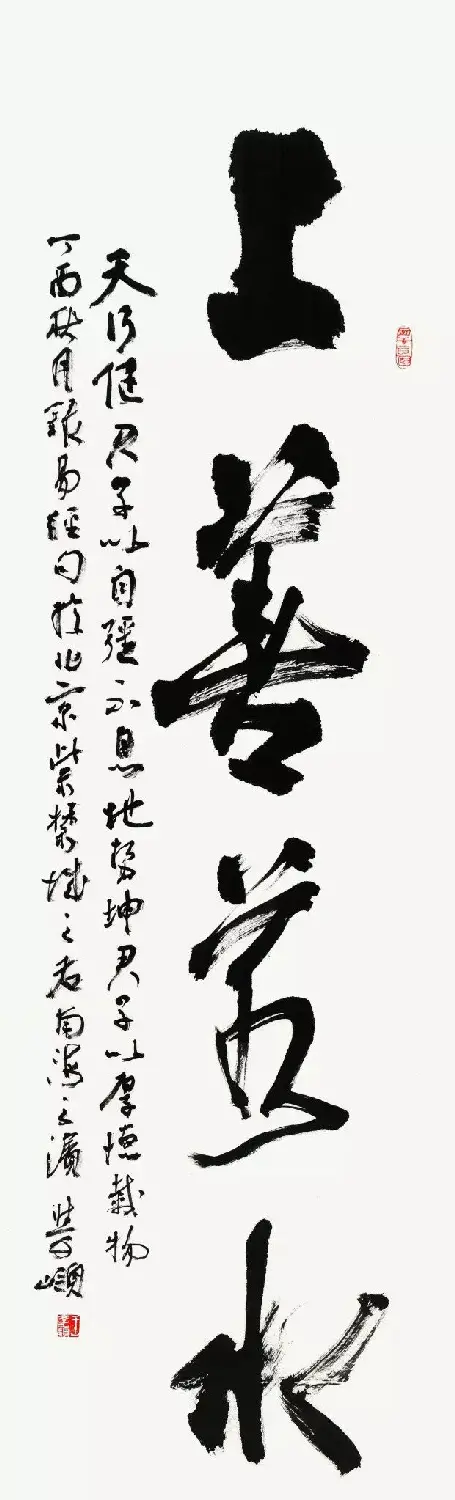 上善若水
天行健君子以自强不息地势坤君子以厚德载物
丁酉秋月录易经句於北京紫禁城之右南海之滨